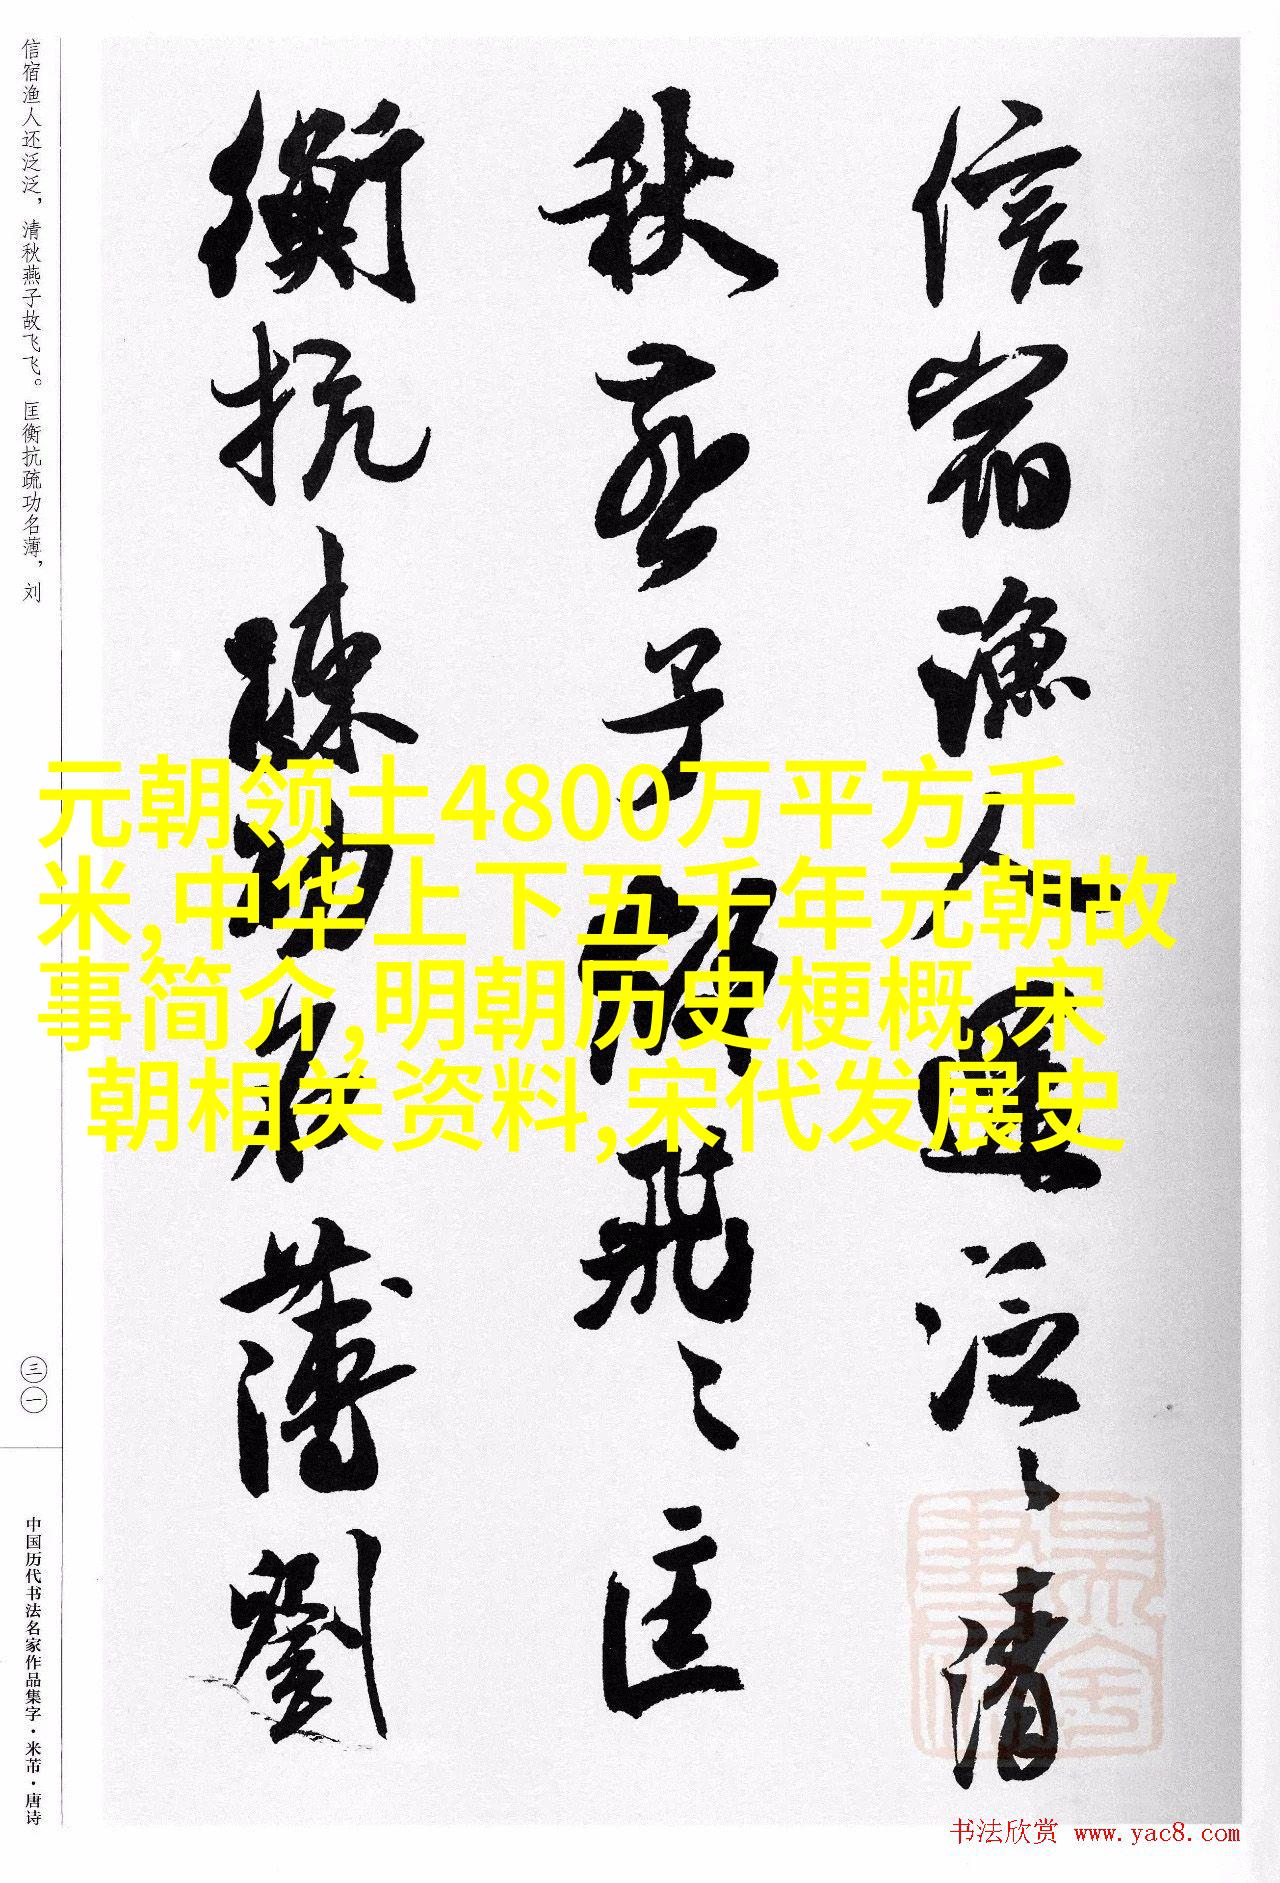 信宿渔人还泛泛，清秋燕子故飞飞。匡衡抗疏功名薄，刘
三一
中国历代书法名家作品集字·米芾·唐诗
信宿渔人還泛〻清
秋燕子故飛〻匡
衡抗疏功名薄劉
元朝领土4800万平方千
米,中华上下五千年元朝故
事简介,明朝历史梗概,宋
朝相关资料,宋代发展史
书法欣赏 www.yac8.com